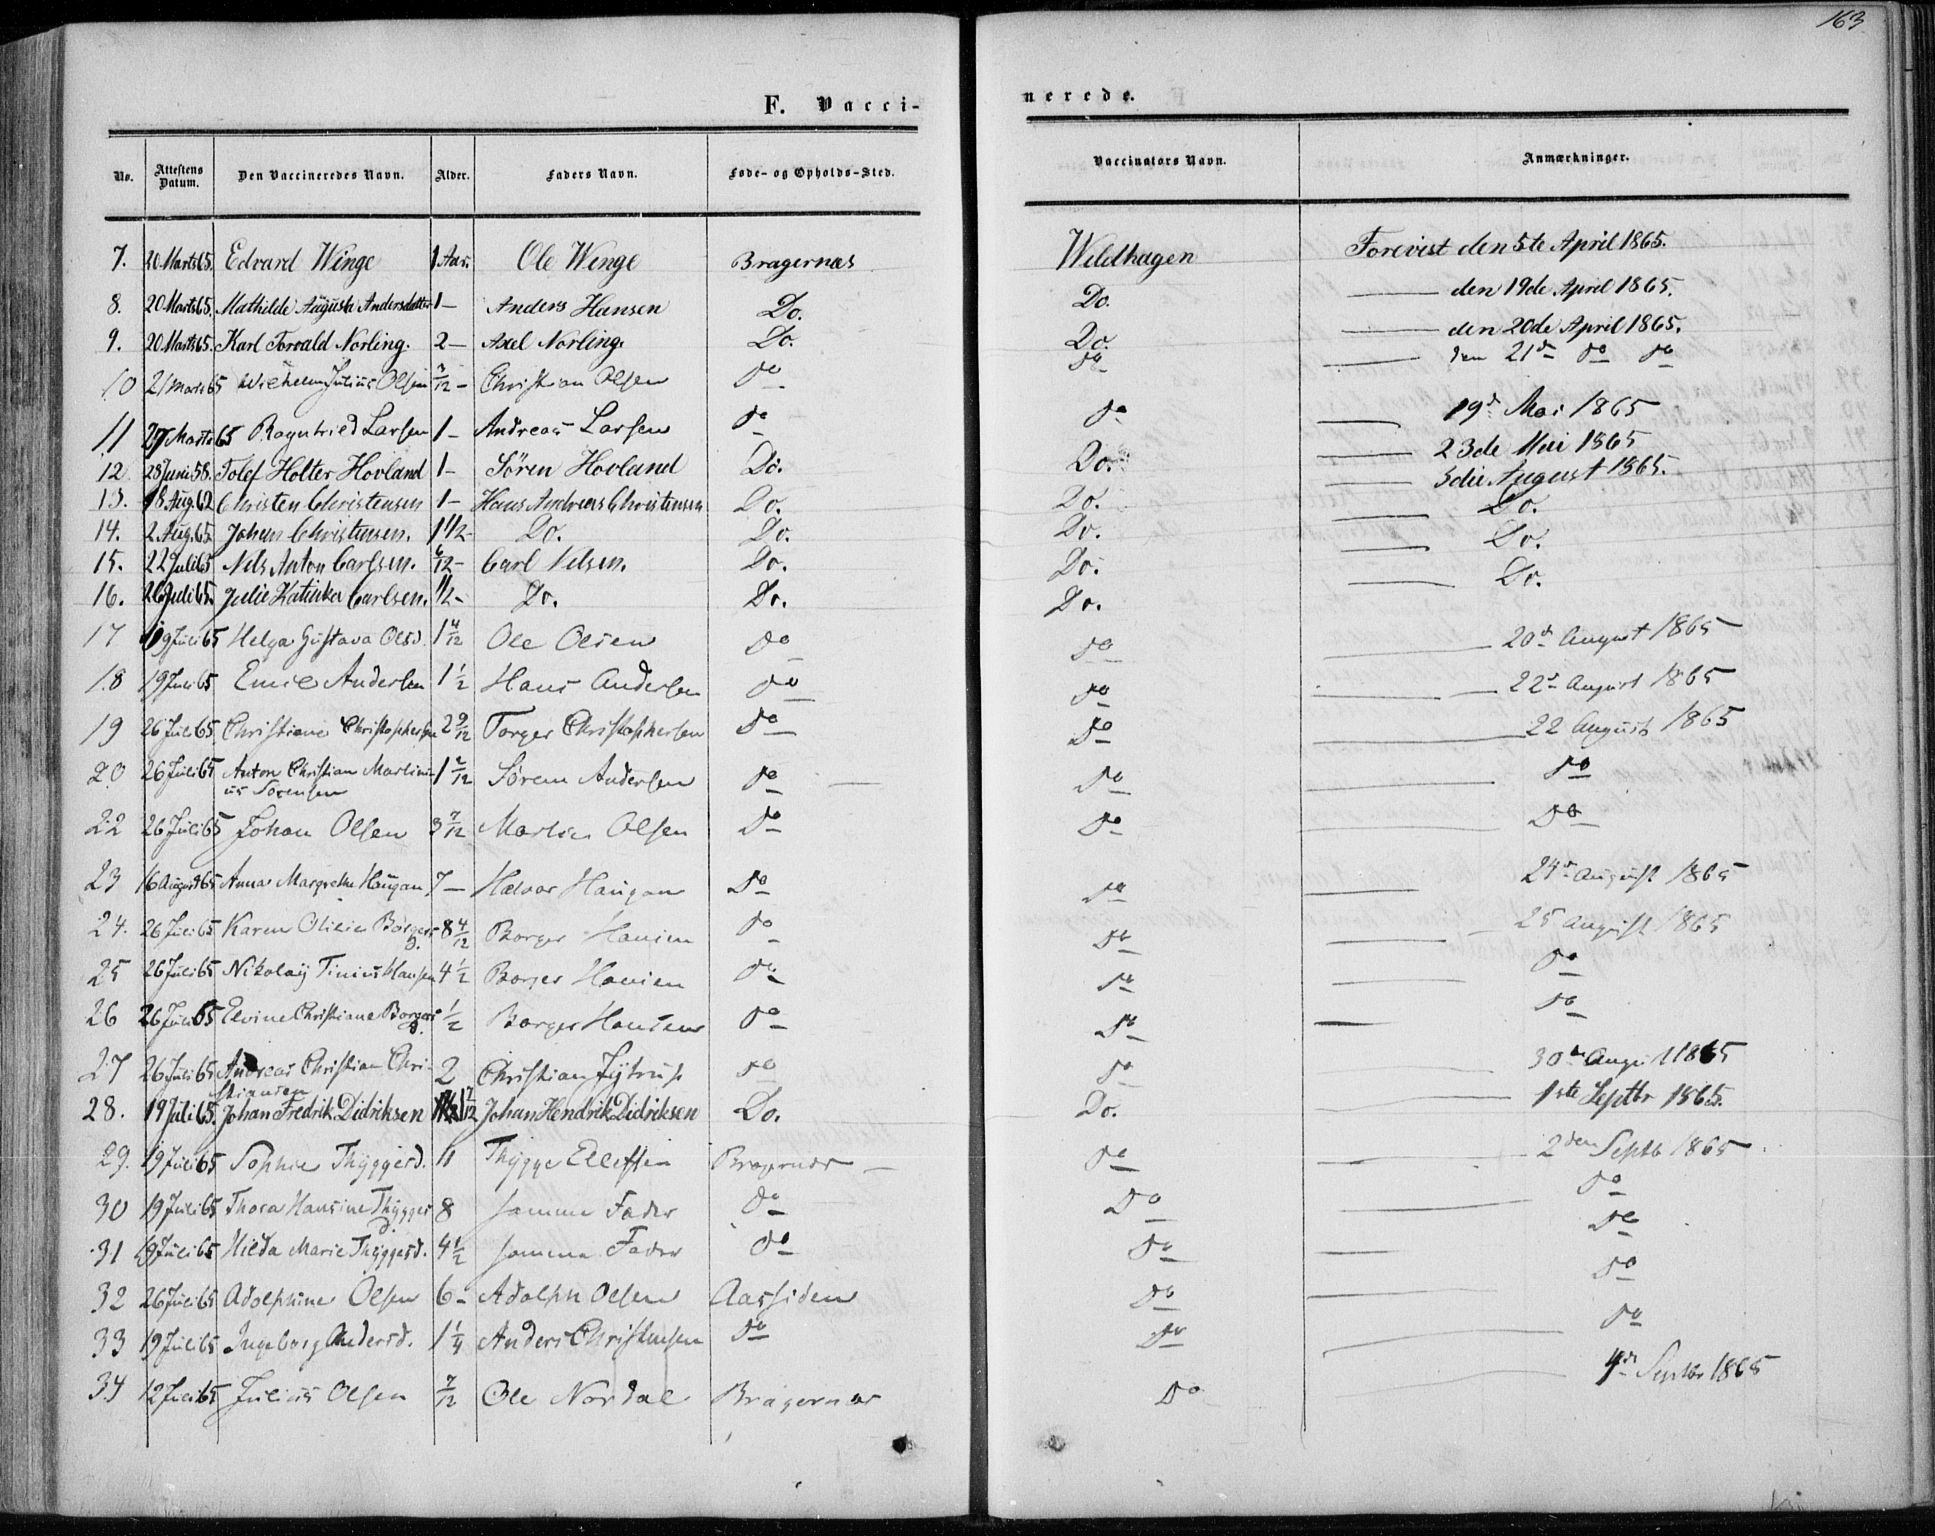 163
F. Vacci-
nerede.
No. | Attestens Datum. | Den Vaccineredes Navn. | Alder. | Faders Navn. | Føde- og Opholds-Sted. | Vaccinators Navn. | Anmærkninger.
7. | 20 Marts 65. | Edvard Winge | 1 Aar. | Ole Winge | Bragernæs | Wildhagen | Forevist den 5te April 1865.
8. | 20 Marts 65. | Mathilde Augusta Andersdatter | 1 – | Anders Hansen | Do. | Do. | — den 19de April 1865.
9. | 20 Marts 65. | Karl Torvald Norling. | 2 – | Axel Norling. | Do. | Do. | — den 20de April 1865.
10 | 21 Marts 65 | Wilhelm Julius Olsen | 7/12 – | Christian Olsen | do | do | — den 21de do do
11 | 27 Marts 65 | Ragnhild Larsen | 1 – | Andreas Larsen | do | do | — 19de Mai 1865
12 | 28 Juni 58. | Tolef Holter Hovland | 1 – | Sören Hovland | Do. | Do. | — 23de Mai 1865
13. | 18 Aug. 62 | Christen Christensen | 1 – | Hans Andreas Christensen | Do. | Do. | — 3die August 1865.
14. | 2 Aug. 65 | Johan Christensen. | 1 1/2 – | Do. | Do. | Do. | — Do.
15. | 22 Juli 65 | Nels Anton Carlsen. | 6/12 – | Carl Nelsen. | Do. | Do. | — Do.
16. | 26 Juli 65. | Julie Katinka Carlsen. | 1/2 – | Do. | Do. | Do. | — Do.
17 | 19 Juli 65 | Helga Gustava Olsd. | 1 4/12 | Ole Olsen | do | do | — 20de August 1865
18 | 19 Juli 65 | Emil Andersen | 1 1/2 | Hans Andersen | do | do | — 22de August 1865
19 | 26 Juli 65 | Christiane Christophersen | 2 9/12 | Torger Christophersen | do | do | — 22 August 1865
20 | 26 Juli 65 | Anton Christian Martinius Sörensen | 1 2/12 | Sören Andersen | do | do | — do
22 | 26 Juli 65 | Johan Olsen | 3 7/12 | Martin Olsen | do | do | do
23 | 16 August 65 | Anna Margrethe Haugan | 7 – | Halvor Haugan | do | do | — 24de August 1865
24. | 26 Juli 65 | Karen Olivia Borgersd. | 8 4/12 | Borger Hansen | do | do | — 25 August 1865
25 | 26 Juli 65 | Nikolay Tinius Hansen | 4 1/2 | Borger Hansen | do | do | — do
26 | 26 Juli 65 | Elvine Christiane Borgersd. | 1/2 | Borger Hansen | do | do | — do
27 | 26 Juli 65 | Andreas Christian Christiansen | 2 | Christian | do | do | — 30de August 1865
28. | 19 Juli 65. | Johan Fredrik Didriksen | 1 7/12 | Johan Hendrik Didriksen | Do. | Do. | — 1ste Septbr 1865.
29. | 19 Juli 65 | Sophie Thyggersd. | 11 | Thygge Ellefsen | Bragernæs | do | — 2den Septb 1865
30 | 19 Juli 65 | Thora Hansine Thyggersd. | 8 | samme Fader | do | do | — do
31 | 19 Juli 65 | Hilda Marie Thyggersd. | 4 1/2 | samme Fader | do | do | — do
32 | 26 Juli 65 | Adolphine Olsen | 6 – | Adolph Olsen | Aassiden | do | — do
33 | 19 Juli 65 | Ingeborg Andersd. | 1 1/4 | Anders Christensen | do | do | — do
34 | 12 Juli 65 | Julius Olsen | 7/12 | Ole Nordal | Bragernæs | do | — 4de Septbr 1865